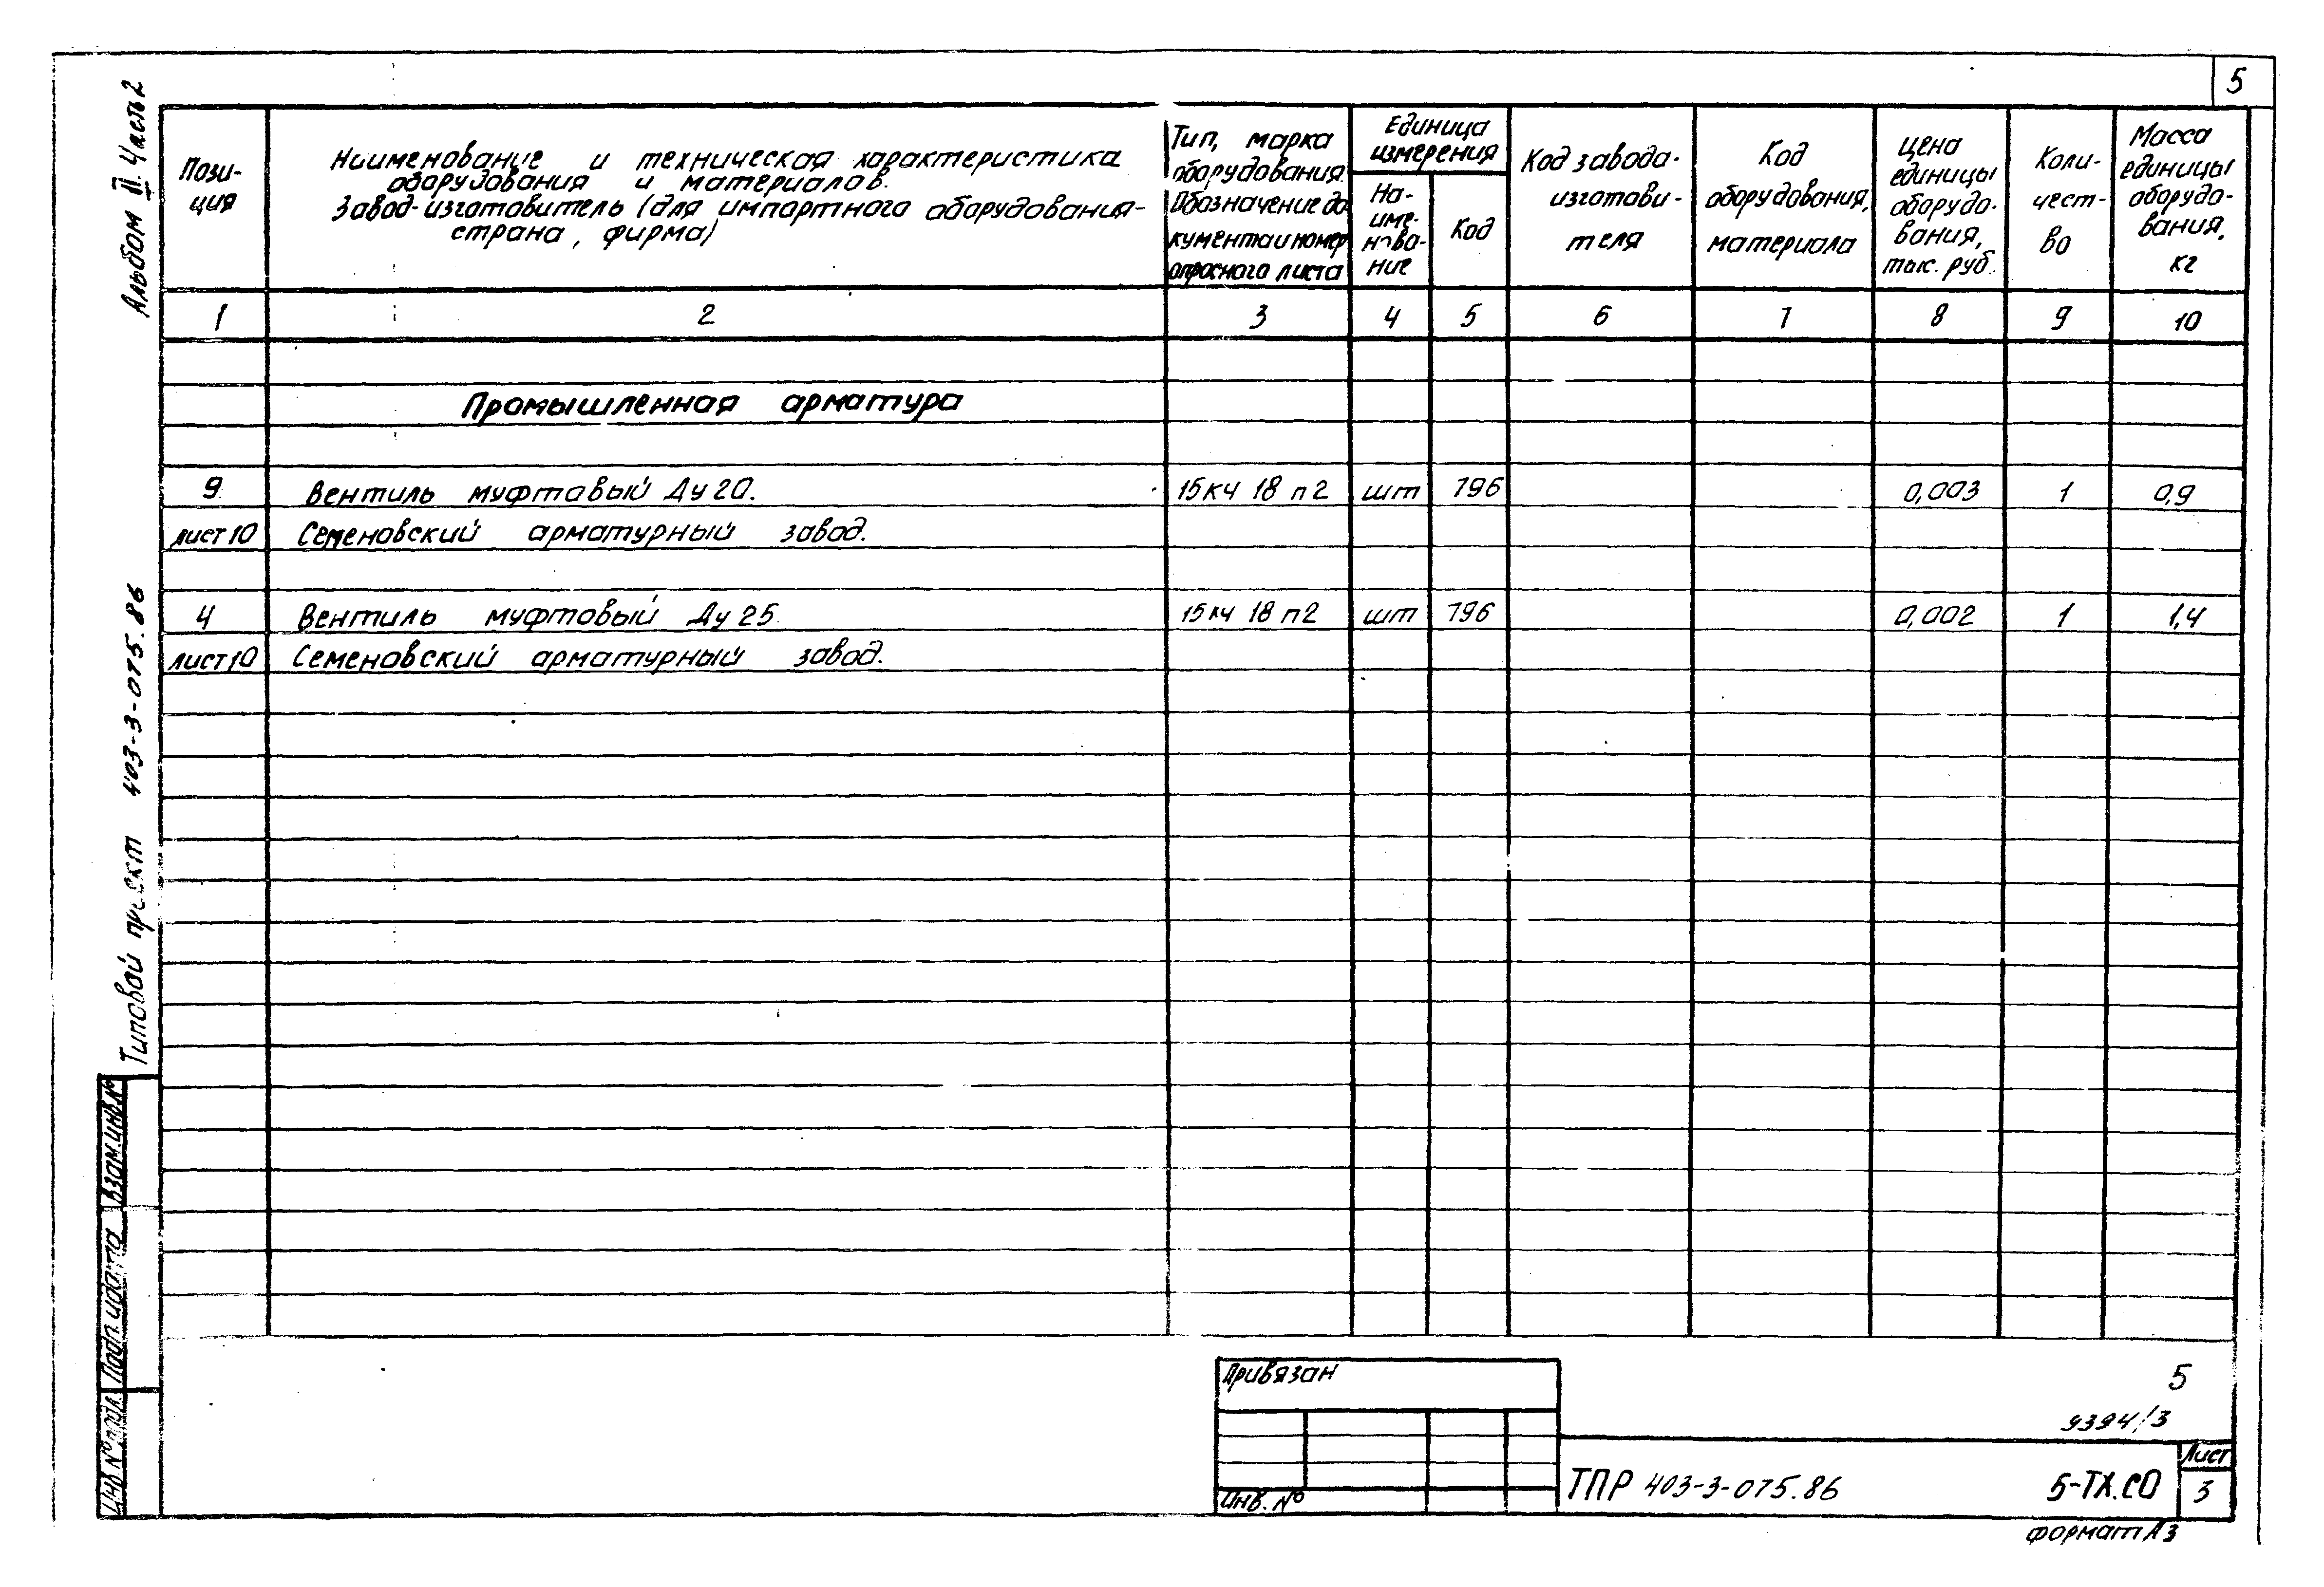 5
Альбом III. Часть 2
Типовой проект 403-3-075.86
Пози-
ция
Наименование и техническая характеристика
оборудования и материалов.
Завод-изготовитель (для импортного оборудования-
страна, фирма)
Тип, марка
оборудования.
Обозначение до
кумента и номер
опросного листа
Единица
измерения
На-
име-
нова-
ние
Код
Код завода-
изготови-
теля
Код
оборудования,
материала
Цена
единицы
оборудо-
вания,
тыс. руб.
Коли-
чест-
во
Масса
единицы
оборудо-
вания,
кг
1 2 3 4 5 6 7 8 9 10
Промышленная арматура
9 Вентиль муфтовый Ду 20. 15кч 18 п2 шт 796 0,003 1 0,9
лист 10 Семеновский арматурный завод.
4 Вентиль муфтовый Ду 25 15кч 18 п2 шт 796 0,002 1 1,4
лист 10 Семеновский арматурный завод.
Взам.инв.№
Подп. и дата
Инв № подл.
Привязан
Инв. №
5
9394/3
ТПР 403-3-075.86 5-ТХ.СО
Лист
3
Формат А3